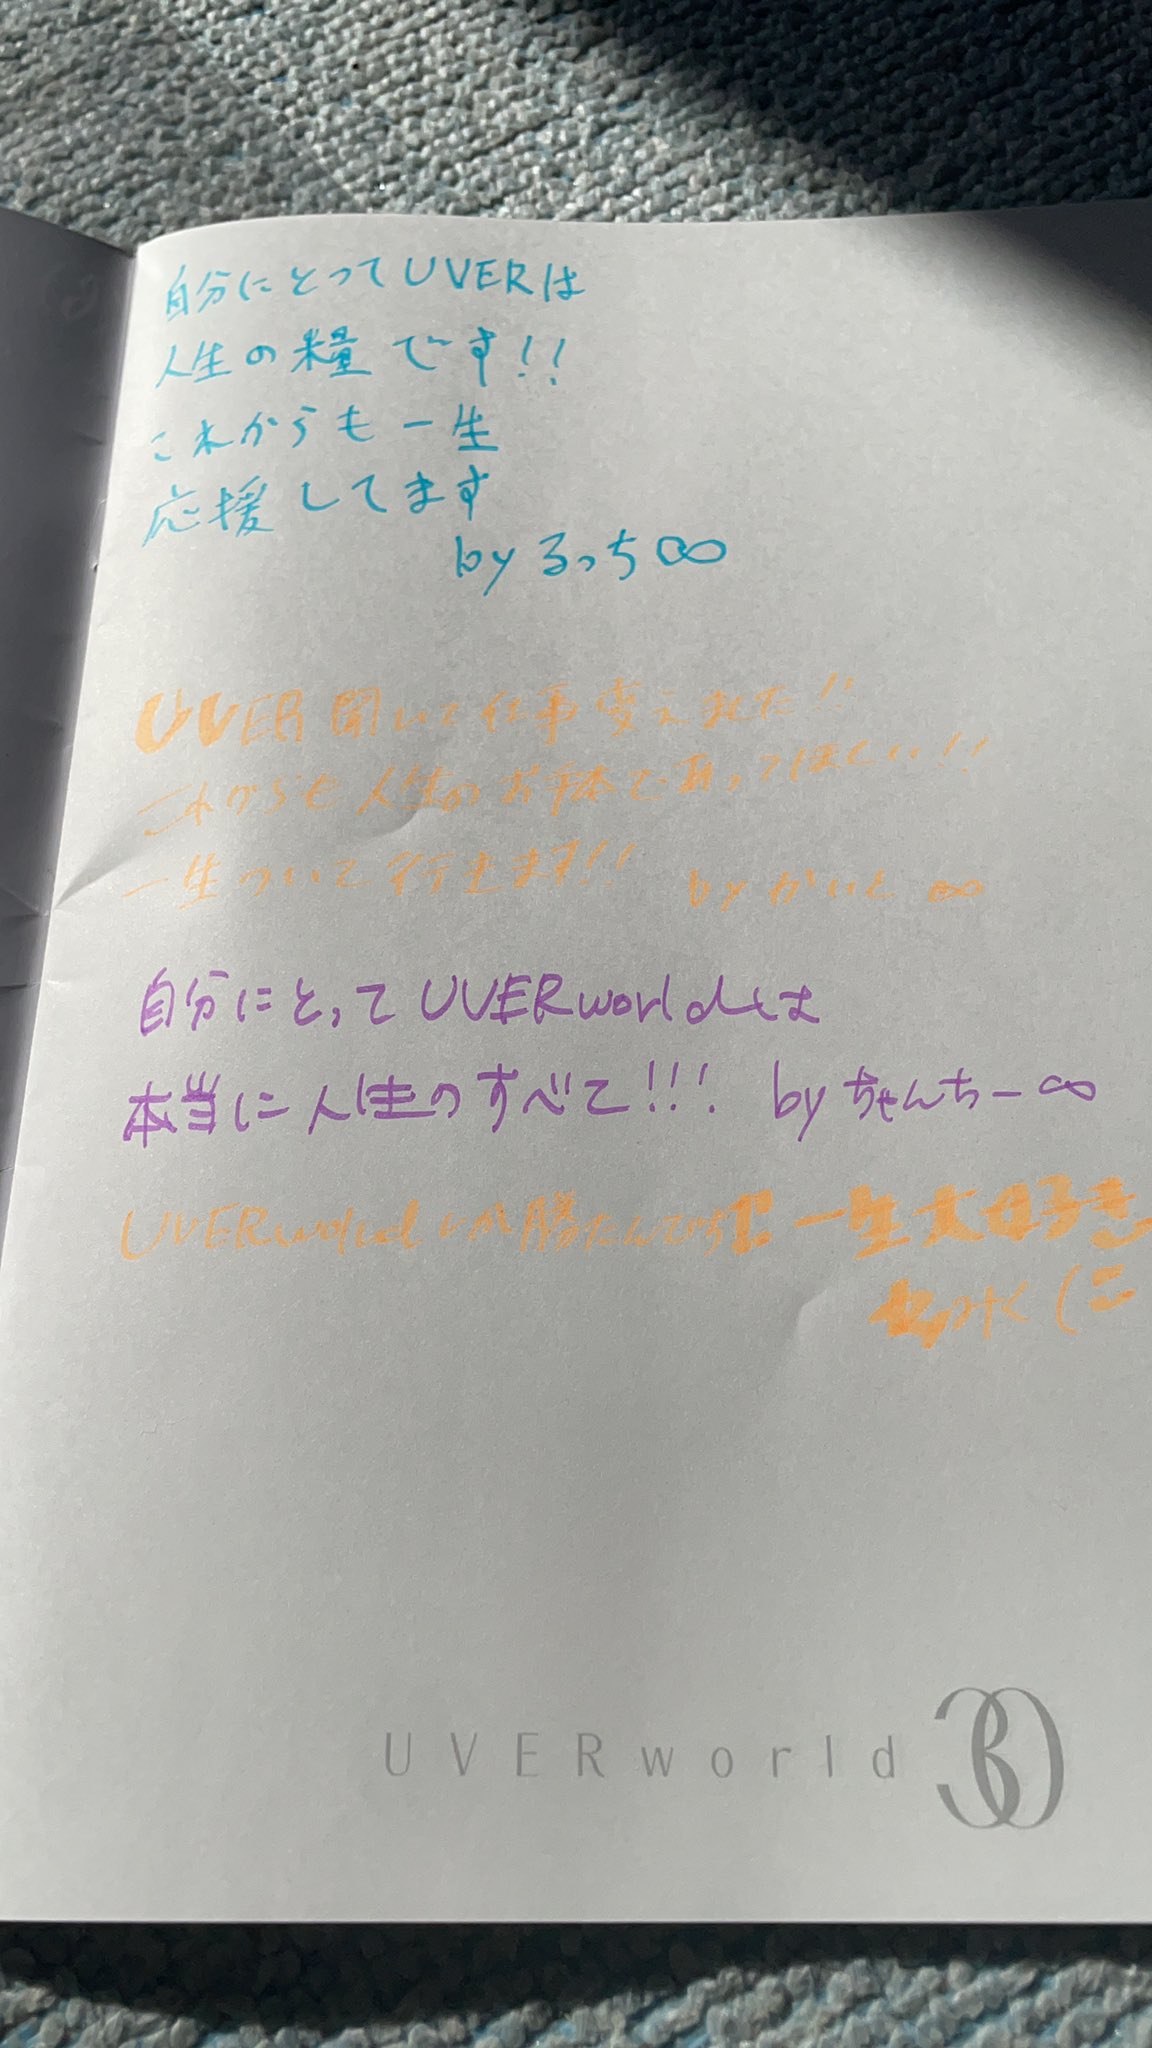 自分にとってUVERは
人生の糧です!!
これからも一生
応援してます
by るっち∞
UVER聞いて仕事変えました!!
これからも人生のお手本であってほしい!!
一生ついて行きます!! by かいと ∞
自分にとってUVERworldは
本当に人生のすべて!!! by ちゃんちー∞
UVERworldしか勝たんです 一生大好き
UVERworld